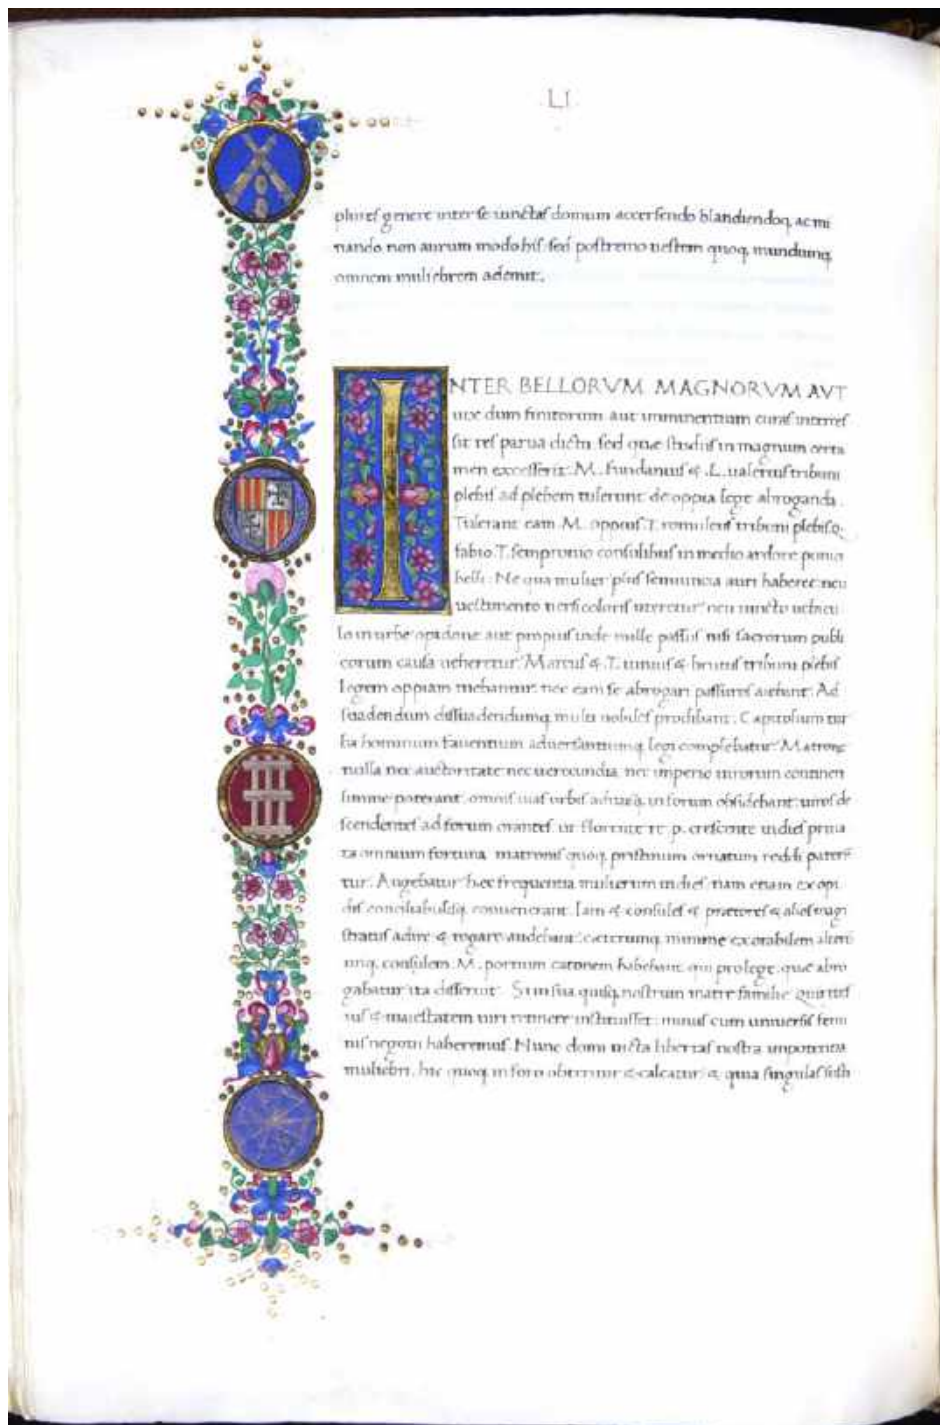 LI
plures genere inter se iunctas domum accersendo blandiendoq, ac mi
nando non aurum modo his. sed postremo uestem quoq, mundumq,
omnem muliebrem ademit.
INTER BELLORVM MAGNORVM AVT
uix dum finitorum aut imminentium curas interces
sit res parua dictu. sed que studiis in magnum certa
men excesserit. M. fundanius & .L. ualerius tribuni
plebis ad plebem tulerunt de oppia lege abroganda.
Tulerant eam M. oppius. T. romuleus tribuni plebis. q.
fabio. T. sempronio consulibus in medio ardore punici
belli. Ne qua mulier plus semuncia auri haberet: neu
uestimento uersicoloris uteretur neu iuncto uehicu
lo in urbe opidoue aut propius inde mille passus nisi sacrorum publi
corum causa ueheretur. Marcus & .T. iunius & brutus tribuni plebis
legem oppiam nec eam se abrogari passuros aiebant. Ad
suadendum dissuadendumq multi nobiles prodibant. Capitolium tur
ba hominum fauentium aduersantiumq, legi complebatur. Matrone
nulla nec auctoritate nec uerecundia, nec imperio uirorum contineri
limine poterant. omnis uias urbis aditusq, in forum obsidebant. uiros de
scendentes ad forum orantes. ut florente re .p. crescente in dies priua
ta omnium fortuna, matronis quoq, pristinum ornatum reddi
tur. Augebatur hec frequentia mulierum in dies. nam etiam ex opi
dis conciliabulisq, conuenerant. Iam & consules & praetores & alios magi
stratus adire & rogare audebant. caeterumq, minime exorabilem alterū
utiq, consulem. M. portium catonem habebant. qui pro lege. que abro
gabatur ita disseruit. Si in sua quisq, nostrum matre familie Quirites
ius & maiestatem uiri retinere instituisset: minus cum uniuersis femi
nis negotii haberemus. Nunc domi uicta libertas nostra impotentia
muliebri, hic quoq, in foro obteritur & calcatur. & quia singulas